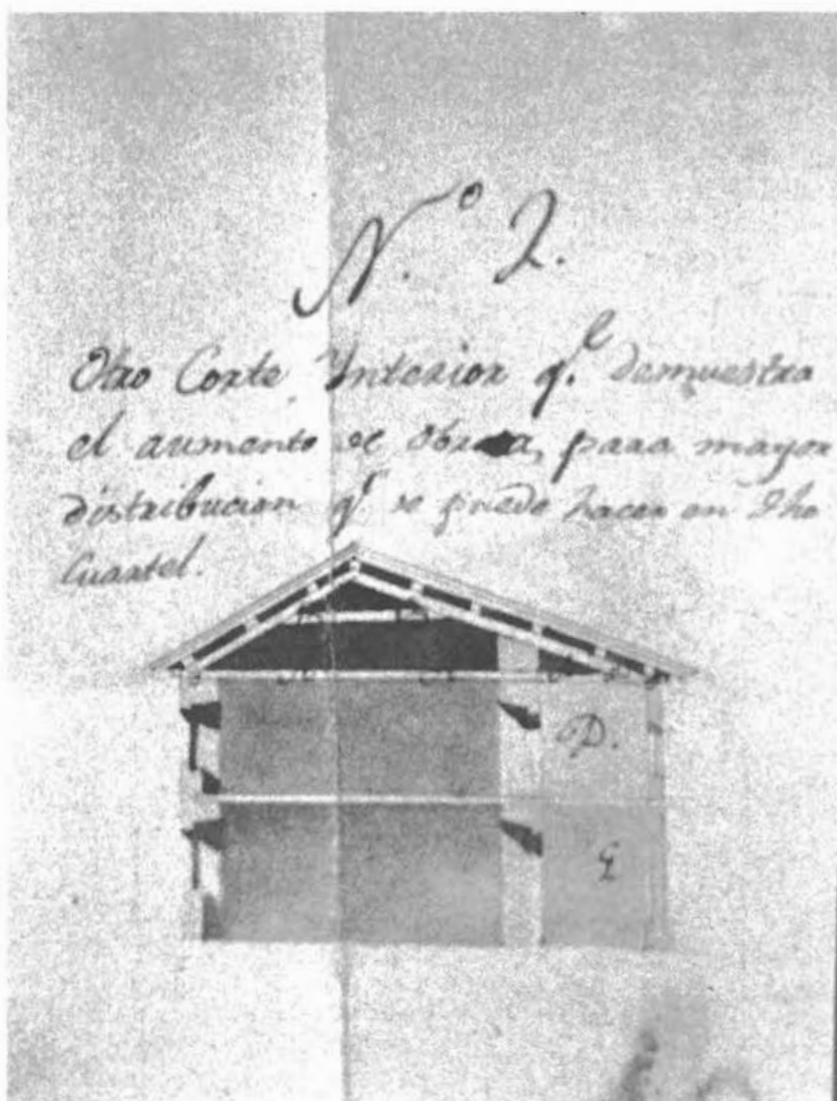 N.º 2.
Otro Corte Interior q.e demuestra
el aumento de obra, para mayor
distribucion q.e se puede hacer en dho
Cuartel.
D.